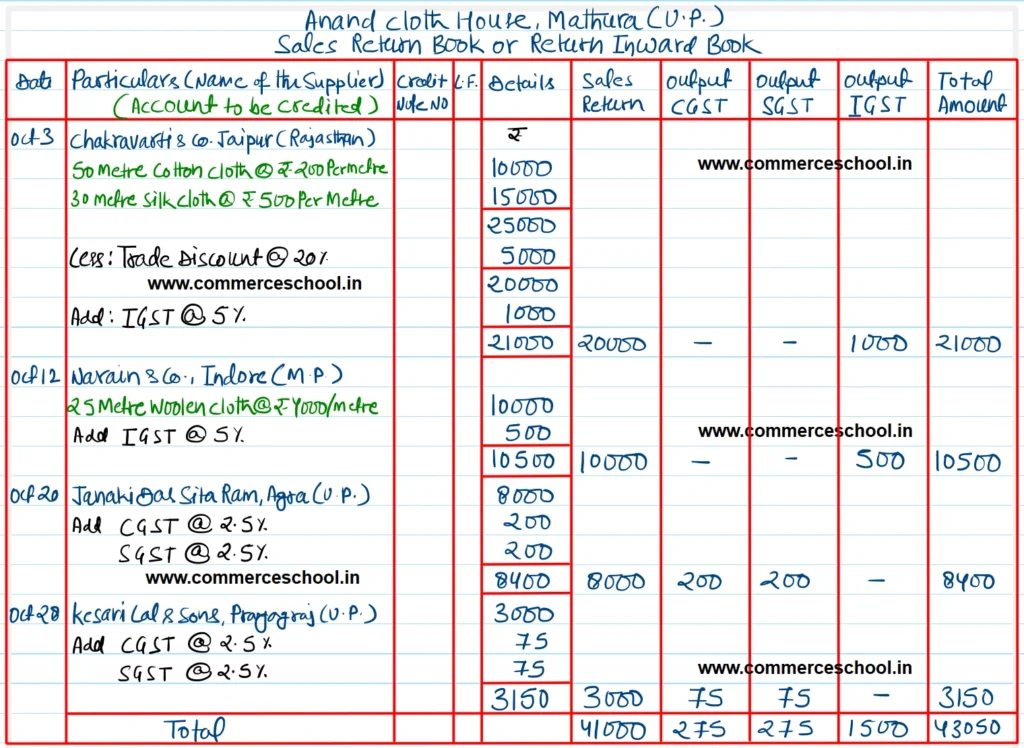 Anand Cloth House, Mathura (U.P.)
Sales Return Book or Return Inward Book
Date Particulars (Name of the Supplier) Credit L.F. Details Sales Output Output Output Total
(Account to be credited) Note NO Return CGST SGST IGST Amount
Oct 3 Chakravarti & Co. Jaipur (Rajasthan) ₹
50 Metre Cotton cloth @ ₹ 200 Per metre 10000 www.commerceschool.in
30 metre silk cloth @ ₹ 500 Per Metre 15000
25000
Less: Trade Discount @ 20% 5000
www.commerceschool.in 20000
Add: IGST @ 5% 1000
21000 20000 – – 1000 21000
Oct 12 Narain & Co., Indore (M.P.)
25 Metre Woolen cloth @ ₹ 400/metre 10000
Add IGST @ 5% 500 www.commerceschool.in
10500 10000 – – 500 10500
Oct 20 Janaki Das Sita Ram, Agra (U.P.) 8000
Add CGST @ 2.5% 200
SGST @ 2.5% 200
www.commerceschool.in 8400 8000 200 200 – 8400
Oct 28 Kesari Lal & Sons, Prayagraj (U.P.) 3000
Add CGST @ 2.5% 75
SGST @ 2.5% 75 www.commerceschool.in
3150 3000 75 75 – 3150
Total 41000 275 275 1500 43050